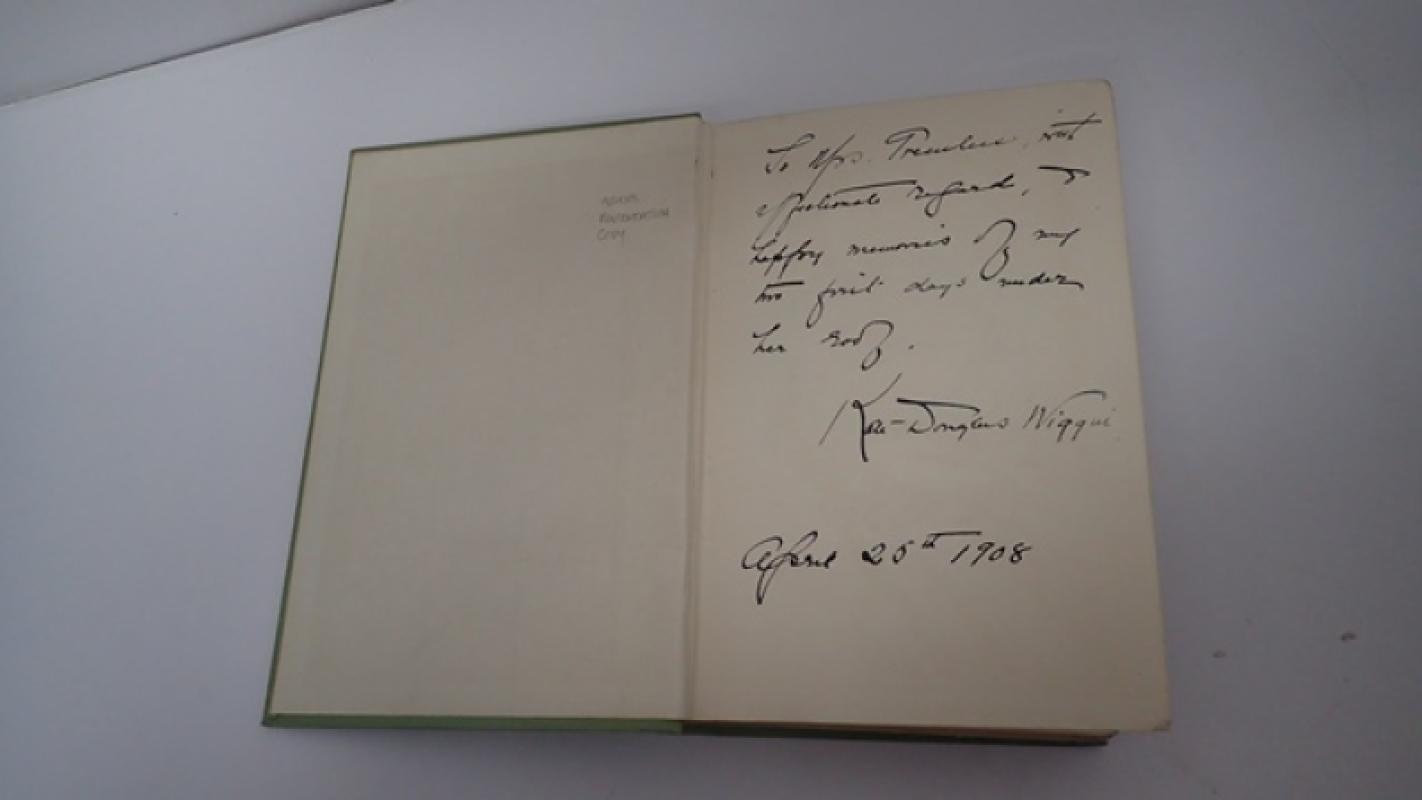 COPY
To Mrs. with
affectionate regard, &
happy memories of my
two first days under
her roof.
Kate Douglas Wiggin
April 25th 1908